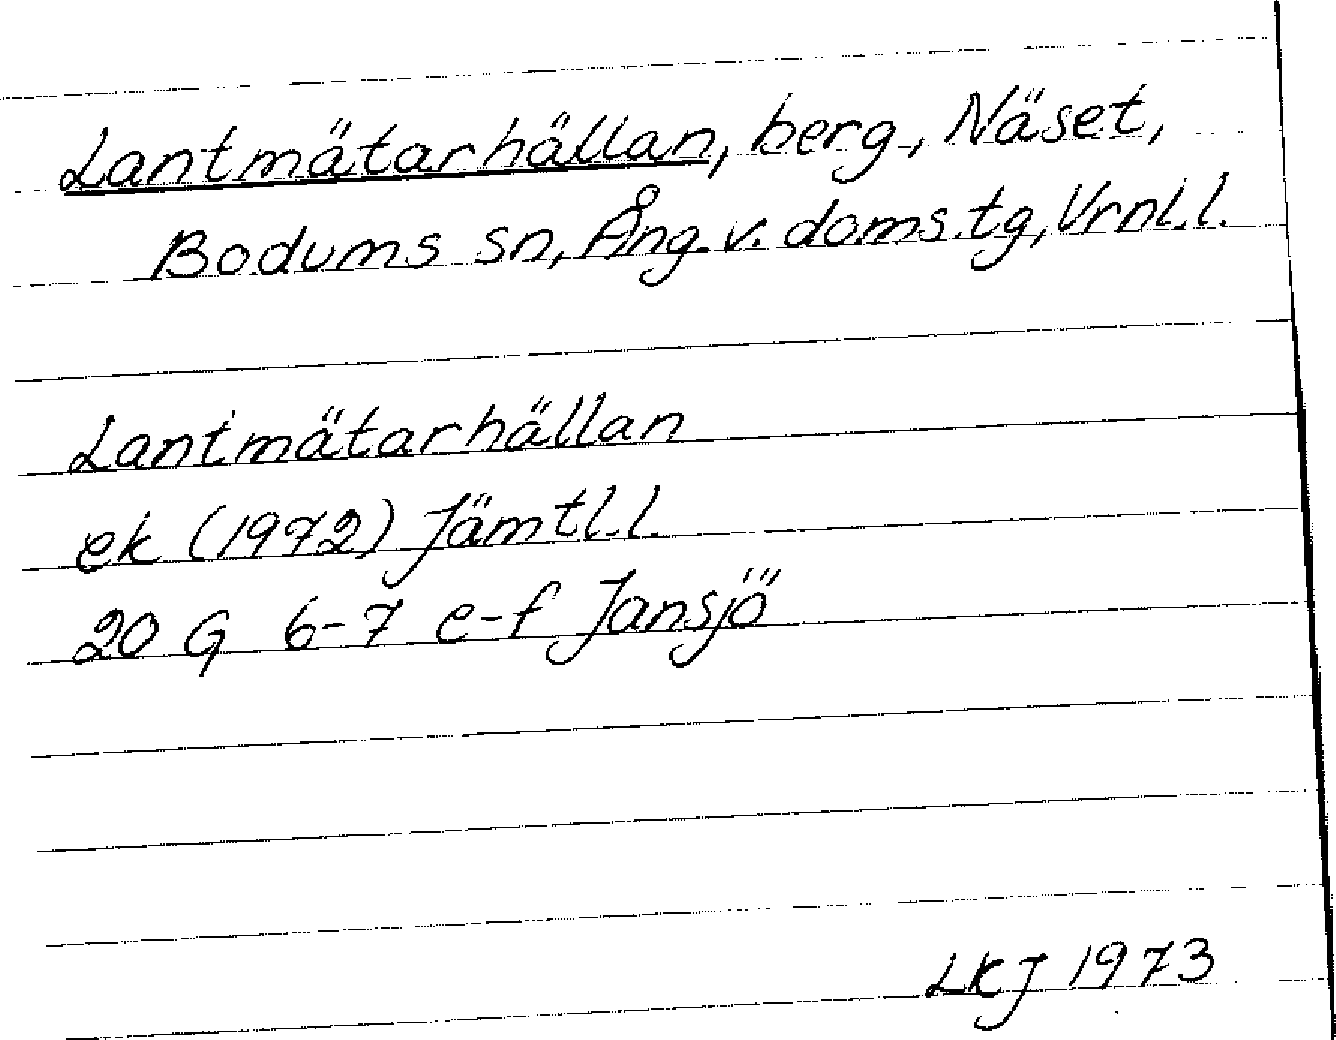 Lantmätarhällan, berg, Näset,
Bodums sn, Ång. v. doms.tg, Vrnl.l.
Lantmätarhällan
ek (1972) Jämtl.l.
20 G 6-7 e-f Jansjö
LKJ 1973